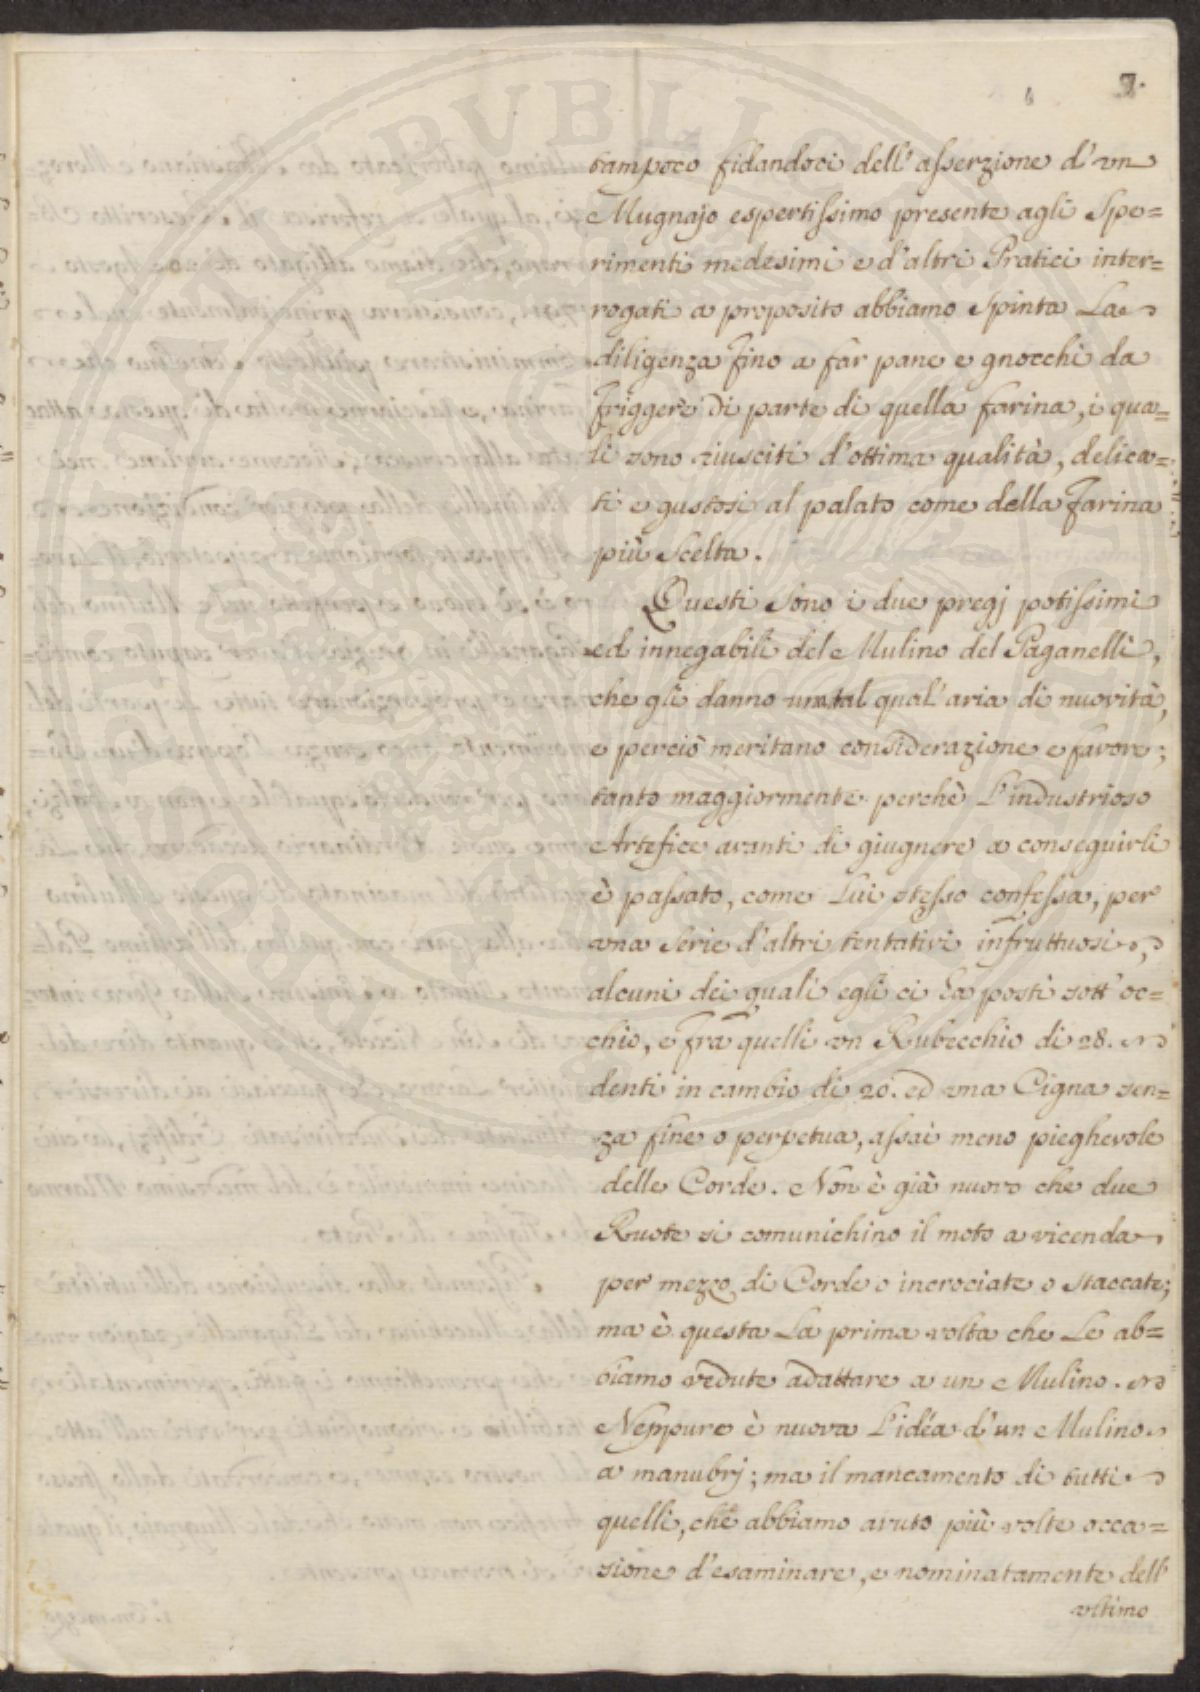 7.
tampoco fidandoci dell'asserzione d'un
Mugnajo espertissimo presente agli Spe=
rimenti medesimi e d'altri Pratici inter=
rogati a proposito abbiamo Spinta La
diligenza fino a far pane e gnocchi da
friggere di parte di quella farina, i qua=
li sono riusciti d'ottima qualità, delica=
ti e gustosi al palato come della farina
più Scelta.
Questi Sono i due pregj potissimi
ed innegabili del Mulino del Paganelli,
che gli danno una tal qual'aria di nuovità,
e perciò meritano considerazione e favore;
tanto maggiormente perchè L'industrioso
Artefice avanti di giugnere a conseguirli
è passato, come Lui stesso confessa, per
una Serie d'altri tentativi infruttuosi,
alcuni dei quali egli ci ha posti sott'oc=
chio, e fra quelli un Rubecchio di 28.
denti in cambio di 20. ed una Cigna sen=
za fine o perpetua, assai meno pieghevole
delle Corde. Non è già nuovo che due
Ruote si comunichino il moto a vicenda
per mezzo di Corde o incrociate o staccate;
ma è questa La prima volta che Le ab=
biamo vedute adattare a un Mulino.
Neppure è nuova L'idéa d'un Mulino
a manubrj; ma il mancamento di tutti
quelli, che abbiamo avuto più volte occa=
sione d'esaminare, e nominatamente dell'
ultimo